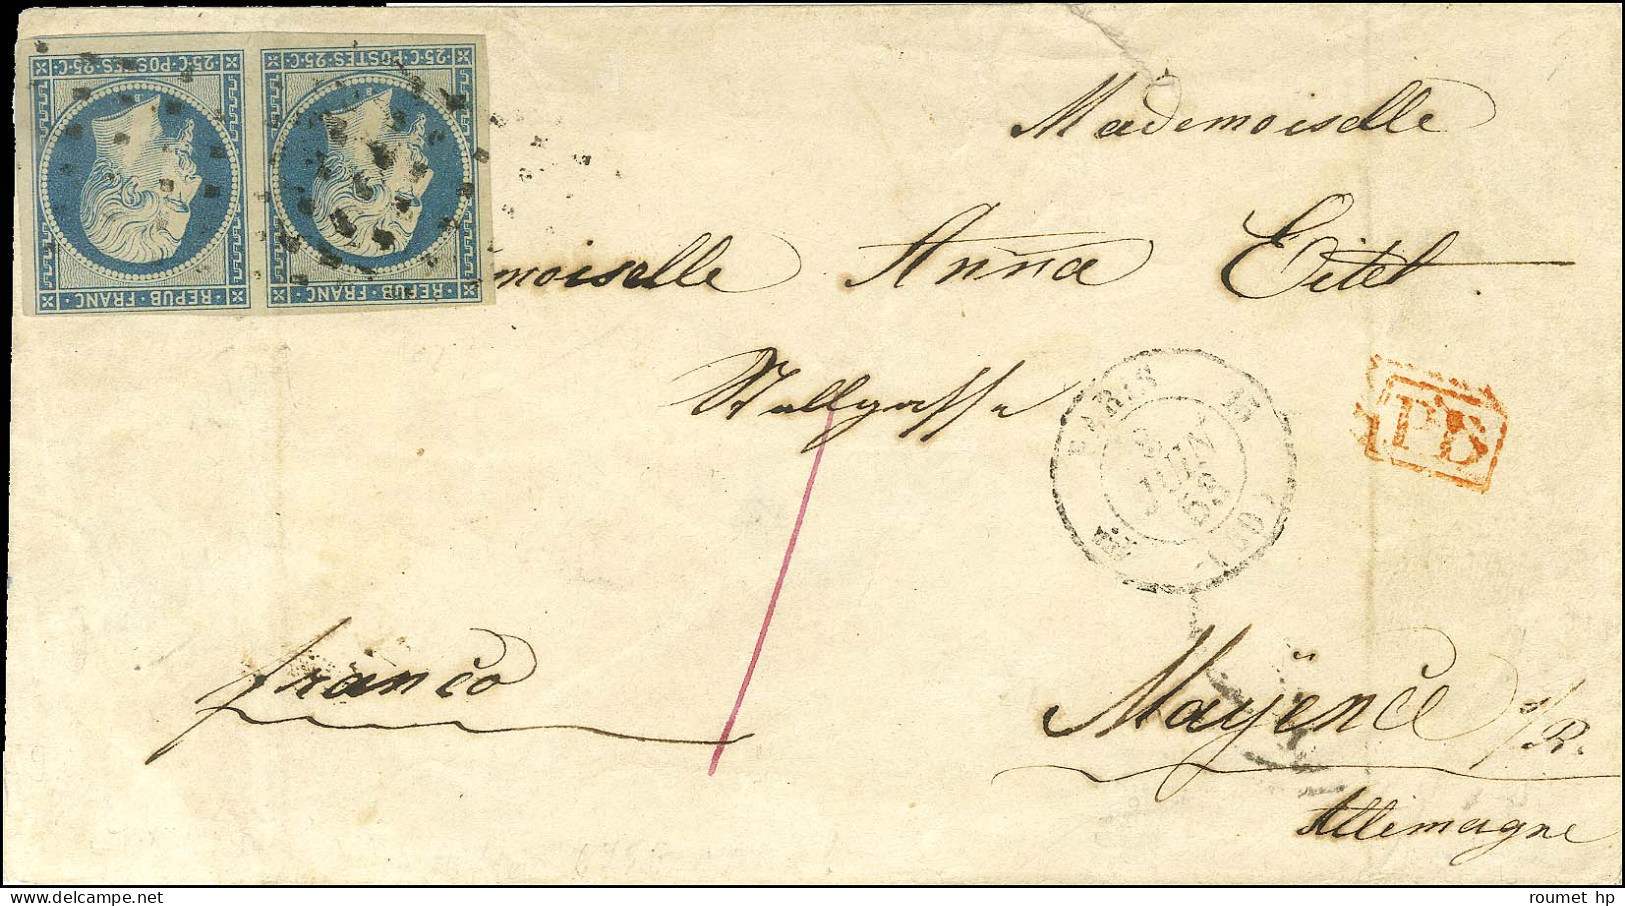 25·C·POSTES·25·C 25·C·POSTES·25·C
REPUB·FRANC· REPUB·FRANC·
Mademoiselle
moiselle Anna Eitel
Stallgasse
PARIS
JUIN
53
(60)
PD
franco
Mayence s/R.
Allemagne
roumet hp